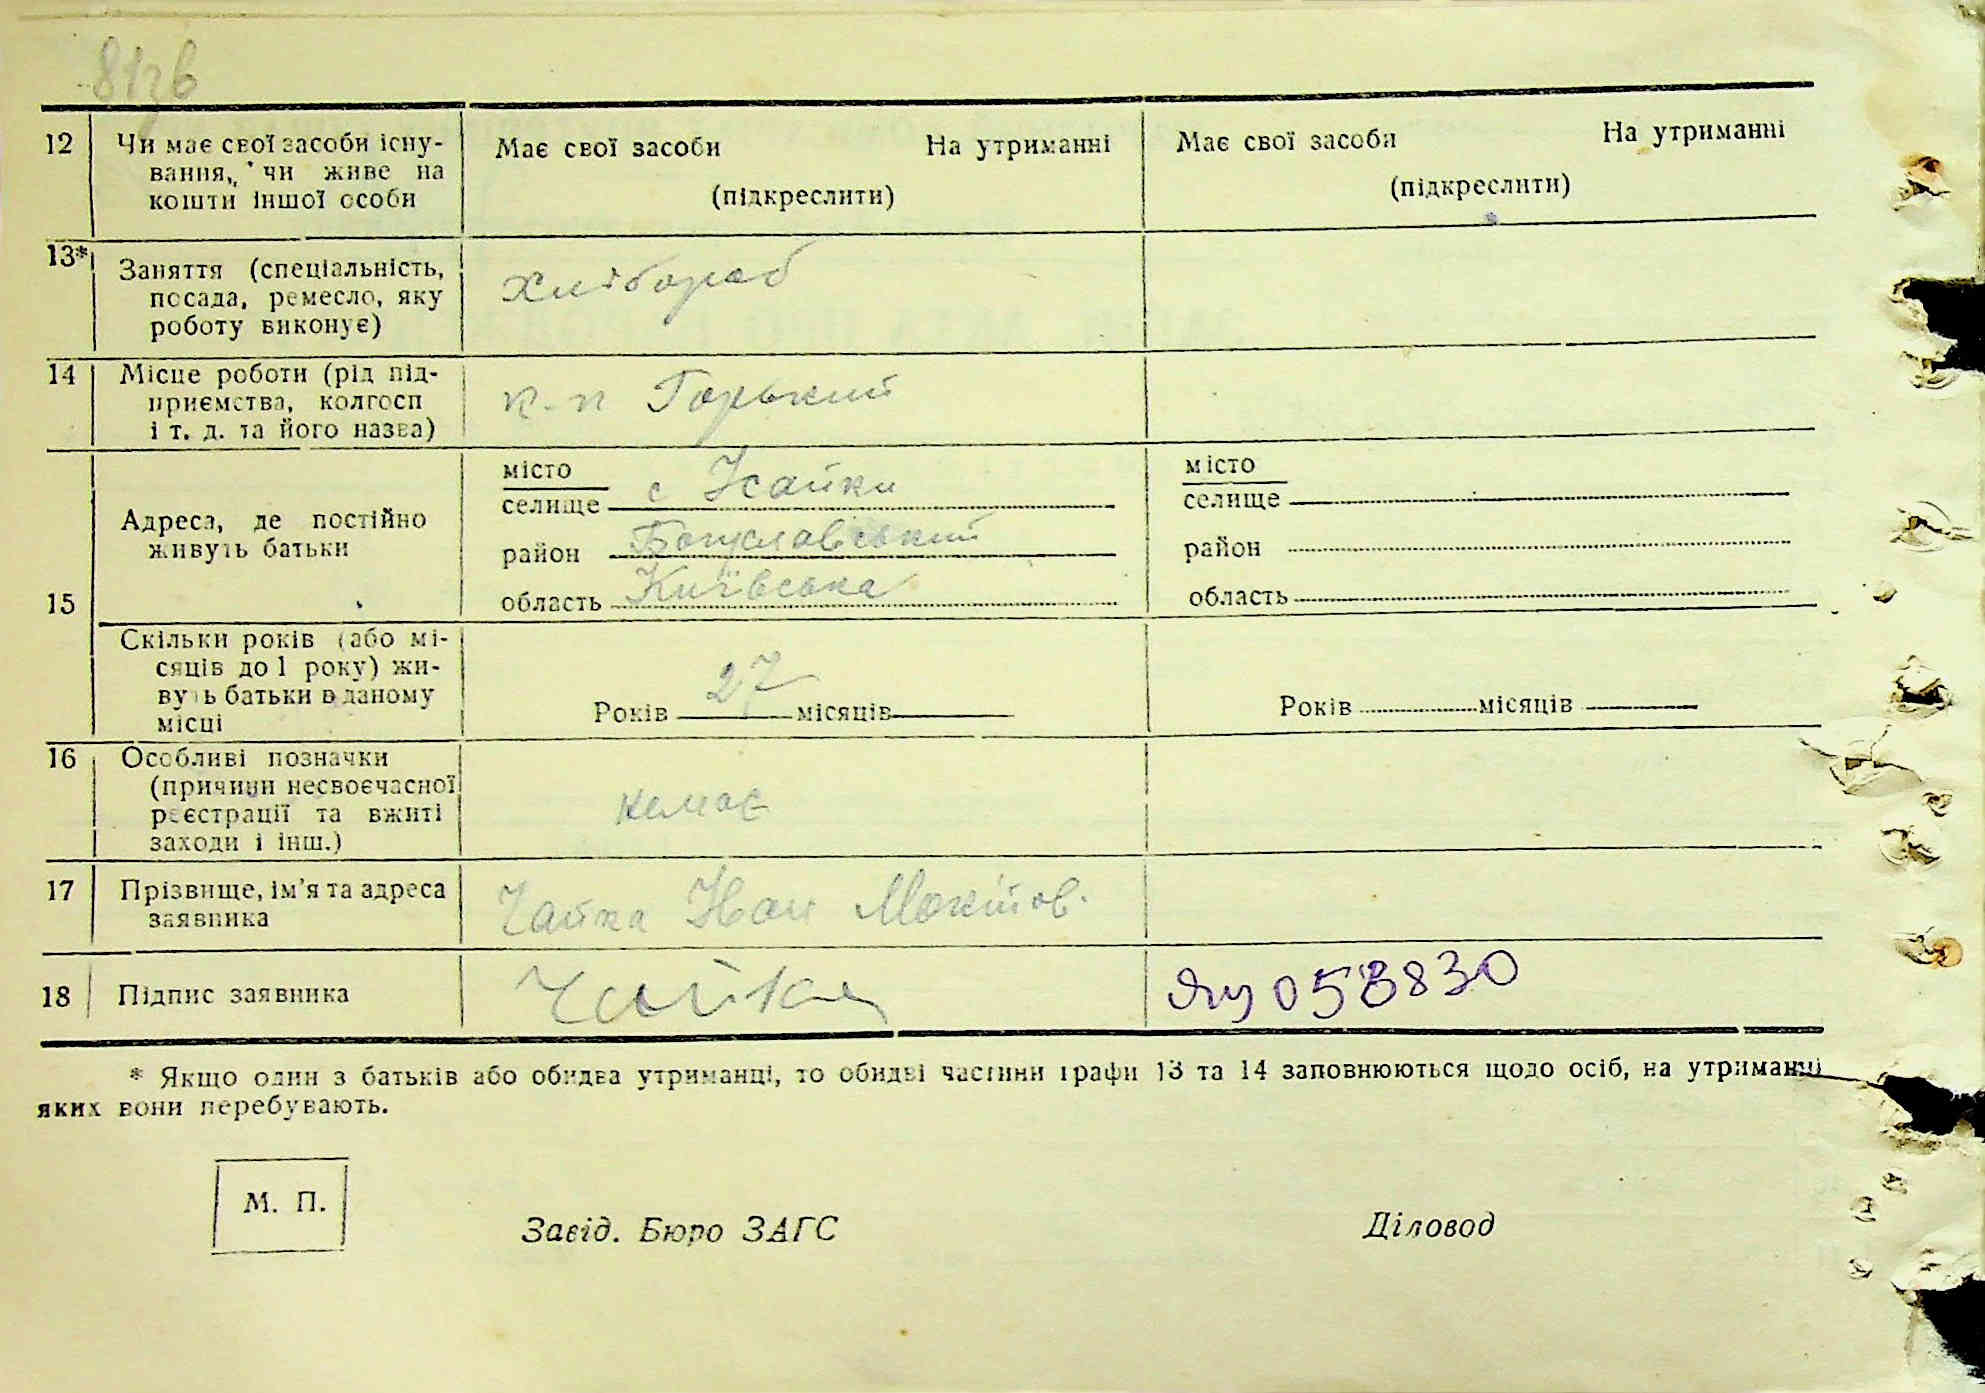 81зв
12 Чи має свої засоби існу-
вання, чи живе на
кошти іншої особи
Має свої засоби На утриманні
(підкреслити)
Має свої засоби На утриманні
(підкреслити)
13* Заняття (спеціальність,
посада, ремесло, яку
роботу виконує)
Хлібороб
14 Місце роботи (рід під-
приємства, колгосп
і т. д. та його назва)
к-п Горький
15 Адреса, де постійно
живуть батьки
місто
селище с Ісайки
район Богуславський
область Київська
місто
селище
район
область
Скільки років (або мі-
сяців до 1 року) жи-
вуть батьки в даному
місці
Років 27 місяців
Років місяців
16 Особливі позначки
(причини несвоєчасної
реєстрації та вжиті
заходи і інш.)
немає
17 Прізвище, ім’я та адреса
заявника
Чайка Іван
18 Підпис заявника
Чайка
058830
* Якщо один з батьків або обидва утриманці, то обидві частини графи 13 та 14 заповнюються щодо осіб, на утриманні
яких вони перебувають.
М. П.
Завід. Бюро ЗАГС
Діловод